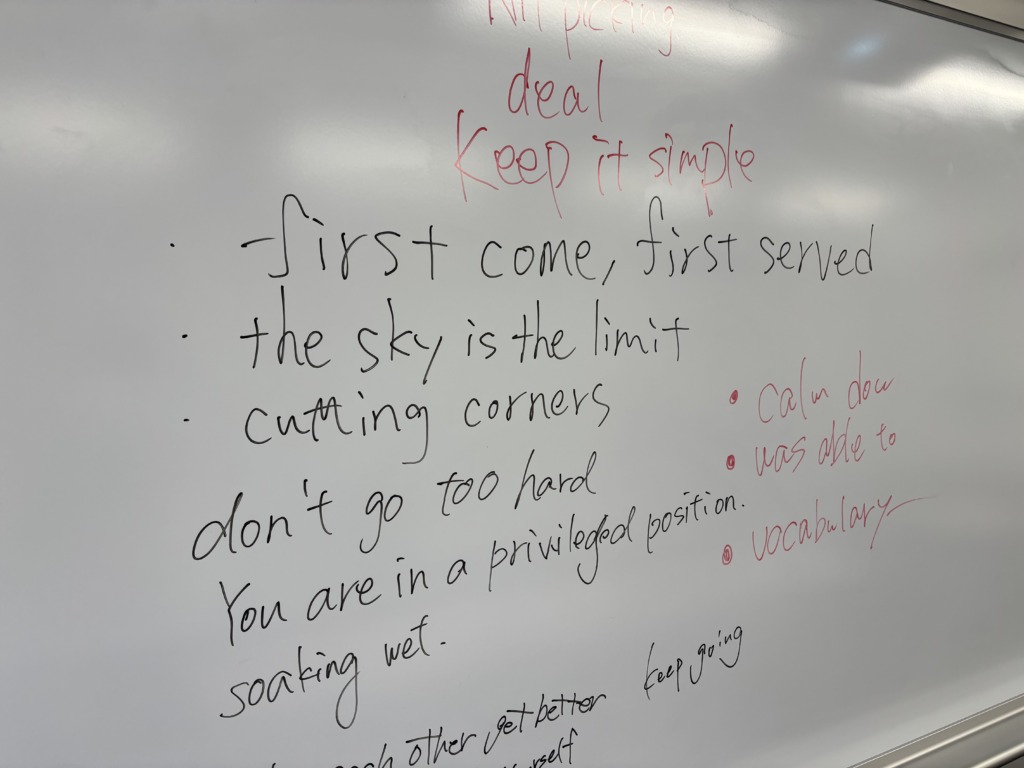 Nit picking
deal
Keep it simple
· first come, first served
· the sky is the limit
· cutting corners
don't go too hard
You are in a privileged position.
soaking wet.
other get better
keep going
• calm dow
• was able to
• vocabulary